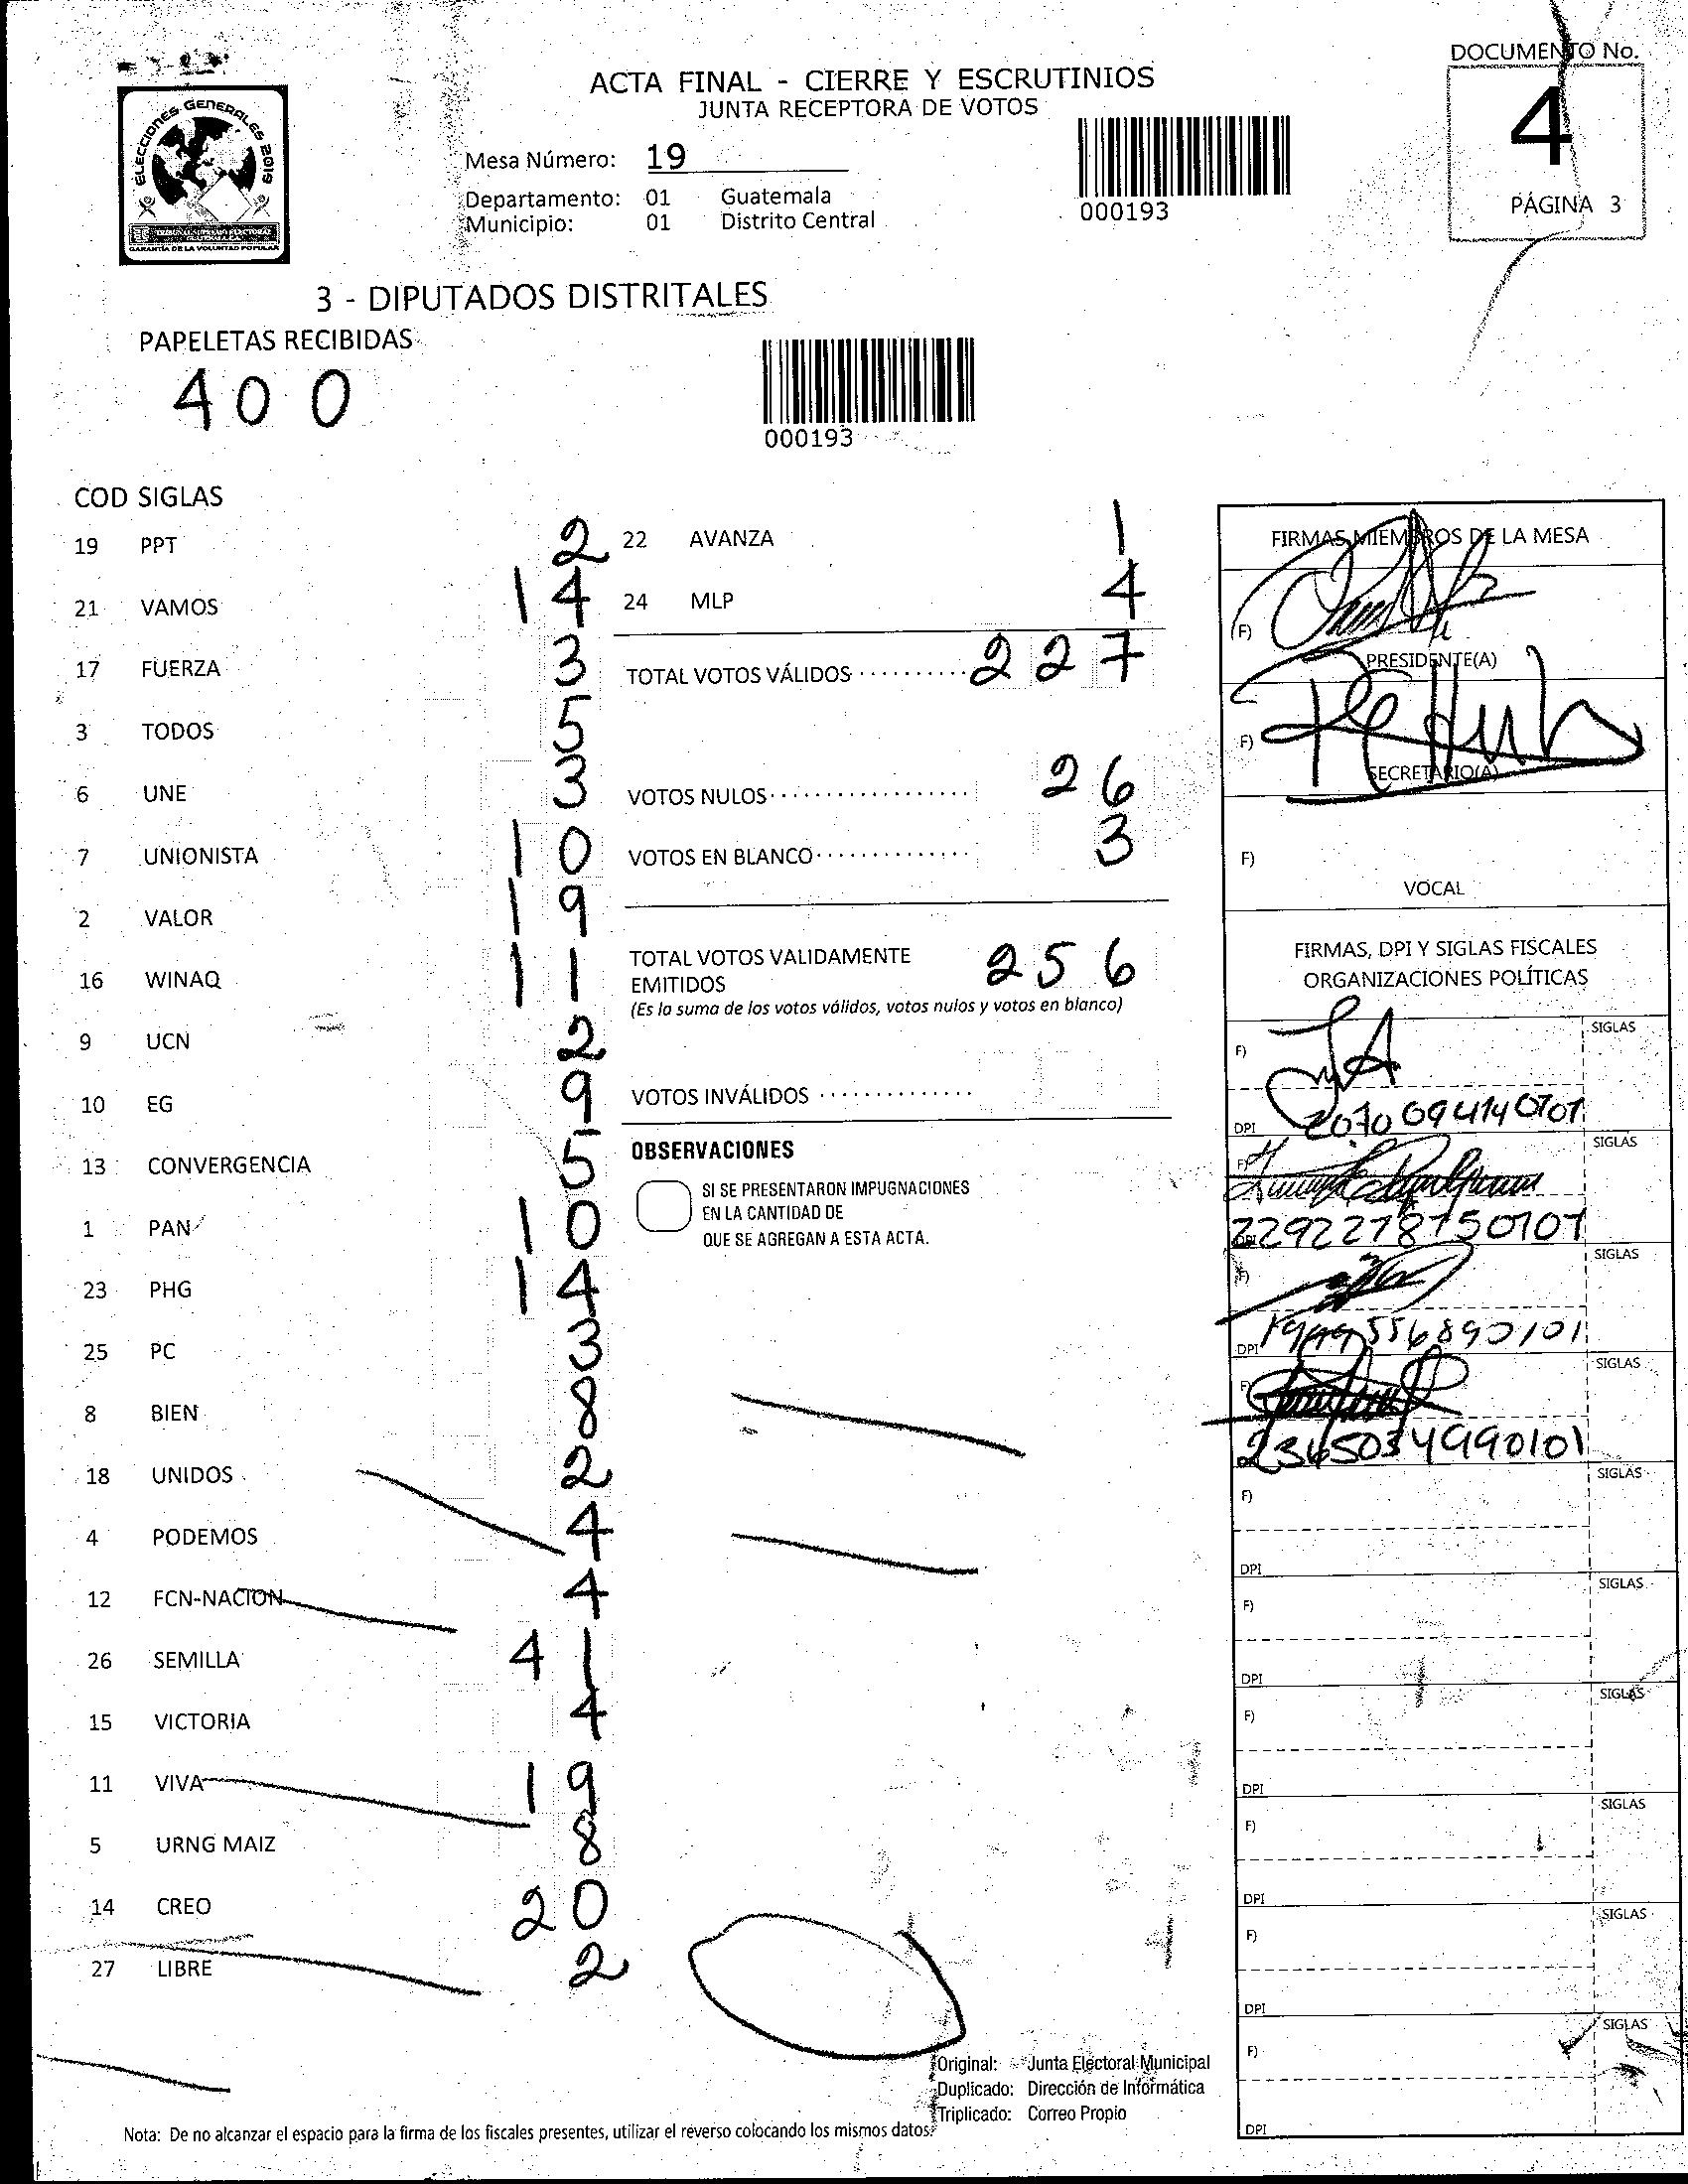 DOCUMENTO No.
4
PÁGINA 3
ELECCIONES GENERALES 2019
GARANTÍA DE LA VOLUNTAD POPULAR
ACTA FINAL - CIERRE Y ESCRUTINIOS
JUNTA RECEPTORA DE VOTOS
Mesa Número: 19
Departamento: 01 Guatemala
Municipio: 01 Distrito Central
000193
3 - DIPUTADOS DISTRITALES
PAPELETAS RECIBIDAS
400
000193
COD SIGLAS
19 PPT 2
21 VAMOS 14
17 FUERZA 3
3 TODOS 5
6 UNE 3
7 UNIONISTA 10
2 VALOR 19
16 WINAQ 11
9 UCN 2
10 EG 9
13 CONVERGENCIA 5
1 PAN 10
23 PHG 14
25 PC 3
8 BIEN 8
18 UNIDOS 2
4 PODEMOS 4
12 FCN-NACION 4
26 SEMILLA 41
15 VICTORIA 4
11 VIVA 19
5 URNG MAIZ 8
14 CREO 20
27 LIBRE 2
22 AVANZA 1
24 MLP 4
TOTAL VOTOS VÁLIDOS 227
VOTOS NULOS 26
VOTOS EN BLANCO 3
TOTAL VOTOS VALIDAMENTE
EMITIDOS 256
(Es la suma de los votos válidos, votos nulos y votos en blanco)
VOTOS INVÁLIDOS
OBSERVACIONES
SI SE PRESENTARON IMPUGNACIONES
EN LA CANTIDAD DE
QUE SE AGREGAN A ESTA ACTA.
FIRMAS MIEMBROS DE LA MESA
F)
PRESIDENTE(A)
F)
SECRETARIO(A)
F)
VOCAL
FIRMAS, DPI Y SIGLAS FISCALES
ORGANIZACIONES POLÍTICAS
F) SIGLAS
DPI 2070094140101
F) SIGLAS
DPI 2292278750101
F) SIGLAS
DPI
F) SIGLAS
2365034990101
F) SIGLAS
DPI
F) SIGLAS
DPI
F) SIGLAS
DPI
F) SIGLAS
DPI
F) SIGLAS
DPI
F) SIGLAS
DPI
Original: Junta Electoral Municipal
Duplicado: Dirección de Informática
Triplicado: Correo Propio
Nota: De no alcanzar el espacio para la firma de los fiscales presentes, utilizar el reverso colocando los mismos datos.